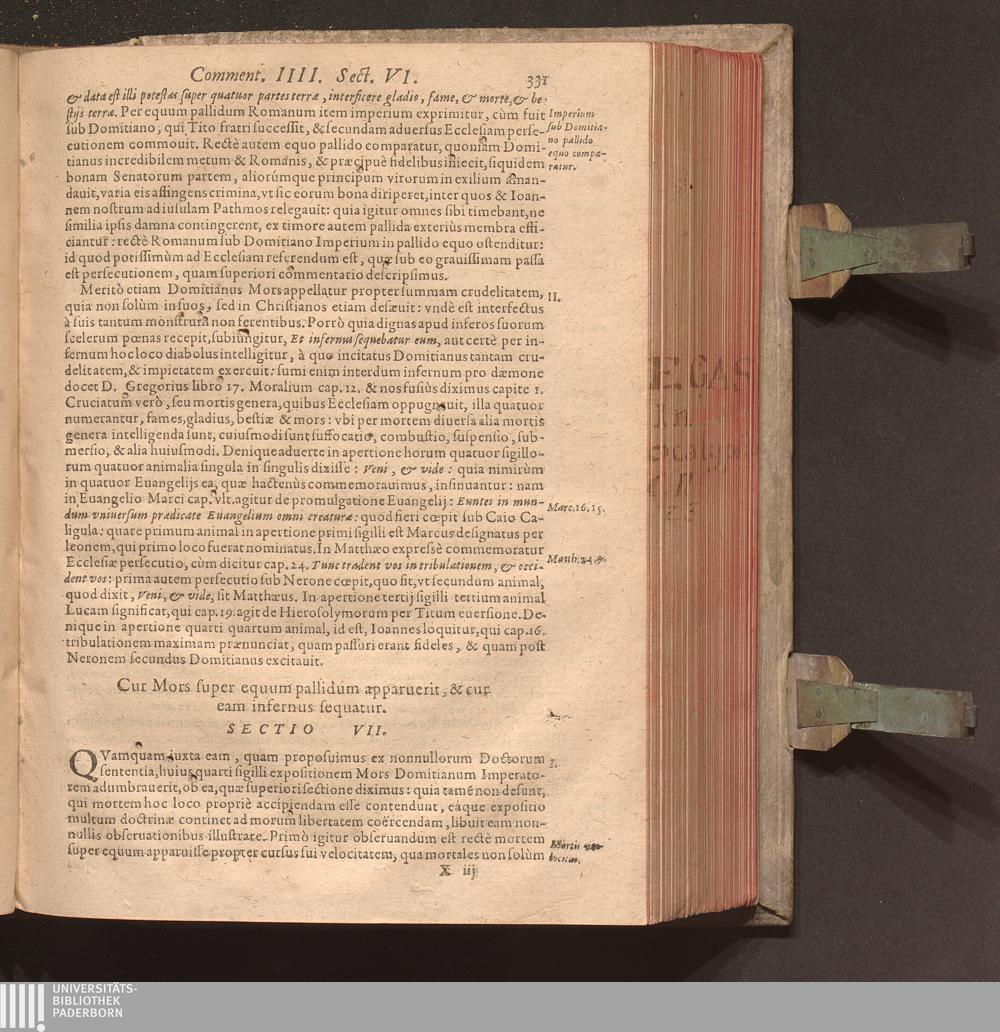 Comment. IIII. Sect. VI. 331
& data est illi potestas super quatuor partes terræ, interficere gladio, fame, & morte, & be-
stijs terræ. Per equum pallidum Romanum item imperium exprimitur, cùm fuit
sub Domitiano, qui Tito fratri successit, & secundam aduersus Ecclesiam perse-
cutionem commouit. Rectè autem equo pallido comparatur, quoniam Domi-
tianus incredibilem metum & Romanis, & præcipuè fidelibus iniecit, siquidem
bonam Senatorum partem, aliorúmque principum virorum in exilium aman-
dauit, varia eis affingens crimina, vt sic eorum bona diriperet, inter quos & Ioan-
nem nostrum ad insulam Pathmos relegauit: quia igitur omnes sibi timebant, ne
similia ipsis damna contingerent, ex timore autem pallida exteriùs membra effi-
ciantur: rectè Romanum sub Domitiano Imperium in pallido equo ostenditur:
id quod potissimùm ad Ecclesiam referendum est, quæ sub eo grauissimam passa
est persecutionem, quam superiori commentario descripsimus.
Imperium
sub Domitia-
no pallido
equo compa-
ratur.
Meritò etiam Domitianus Mors appellatur propter summam crudelitatem,
quia non solùm in suos, sed in Christianos etiam desæuit: vndè est interfectus
à suis tantum monstrum non ferentibus. Porrò quia dignas apud inferos suorum
scelerum pœnas recepit, subiungitur, Et infernus sequebatur eum, aut certè per in-
fernum hoc loco diabolus intelligitur, à quo incitatus Domitianus tantam cru-
delitatem, & impietatem exercuit: sumi enim interdum infernum pro dæmone
docet D. Gregorius libro 17. Moralium cap. 12. & nos fusiùs diximus capite 1.
Cruciatum verò, seu mortis genera, quibus Ecclesiam oppugnauit, illa quatuor
numerantur, fames, gladius, bestiæ & mors: vbi per mortem diuersa alia mortis
genera intelligenda sunt, cuiusmodi sunt suffocatio, combustio, suspensio, sub-
mersio, & alia huiusmodi. Denique aduerte in apertione horum quatuor sigillo-
rum quatuor animalia singula in singulis dixisse: Veni, & vide: quia nimirùm
in quatuor Euangelijs ea, quæ hactenùs commemorauimus, insinuantur: nam
in Euangelio Marci cap. vlt. agitur de promulgatione Euangelij: Euntes in mun-
dum vniuersum prædicate Euangelium omni creaturæ: quod fieri cœpit sub Caio Ca-
ligula: quare primum animal in apertione primi sigilli est Marcus designatus per
leonem, qui primo loco fuerat nominatus. In Matthæo expressè commemoratur
Ecclesiæ persecutio, cùm dicitur cap. 24. Tunc tradent vos in tribulationem, & occi-
dent vos: prima autem persecutio sub Nerone cœpit, quo fit, vt secundum animal,
quod dixit, Veni, & vide, sit Matthæus. In apertione tertij sigilli tertium animal
Lucam significat, qui cap. 19. agit de Hierosolymorum per Titum euersione. De-
nique in apertione quarti quartum animal, id est, Ioannes loquitur, qui cap. 16.
tribulationem maximam prænunciat, quam passuri erant fideles, & quam post
Neronem secundus Domitianus excitauit.
II.
Marc. 16. 15.
Matth. 24. 9.
Cur Mors super equum pallidum apparuerit, & cur
eam infernus sequatur.
SECTIO VII.
QVamquam iuxta eam, quam proposuimus ex nonnullorum Doctorum
sententia, huius quarti sigilli expositionem Mors Domitianum Imperato-
rem adumbrauerit, ob ea, quæ superiori sectione diximus: quia tamẽ non desunt,
qui mortem hoc loco propriè accipiendam esse contendunt, eáque expositio
multum doctrinæ continet ad morum libertatem coërcendam, libuit eam non-
nullis obseruationibus illustrare. Primò igitur obseruandum est rectè mortem
super equum apparuisse propter cursus sui velocitatem, qua mortales non solùm
I.
Mortis ve-
locitas.
X iij
E. GAS
In
UNIVERSITÄTS-
BIBLIOTHEK
PADERBORN